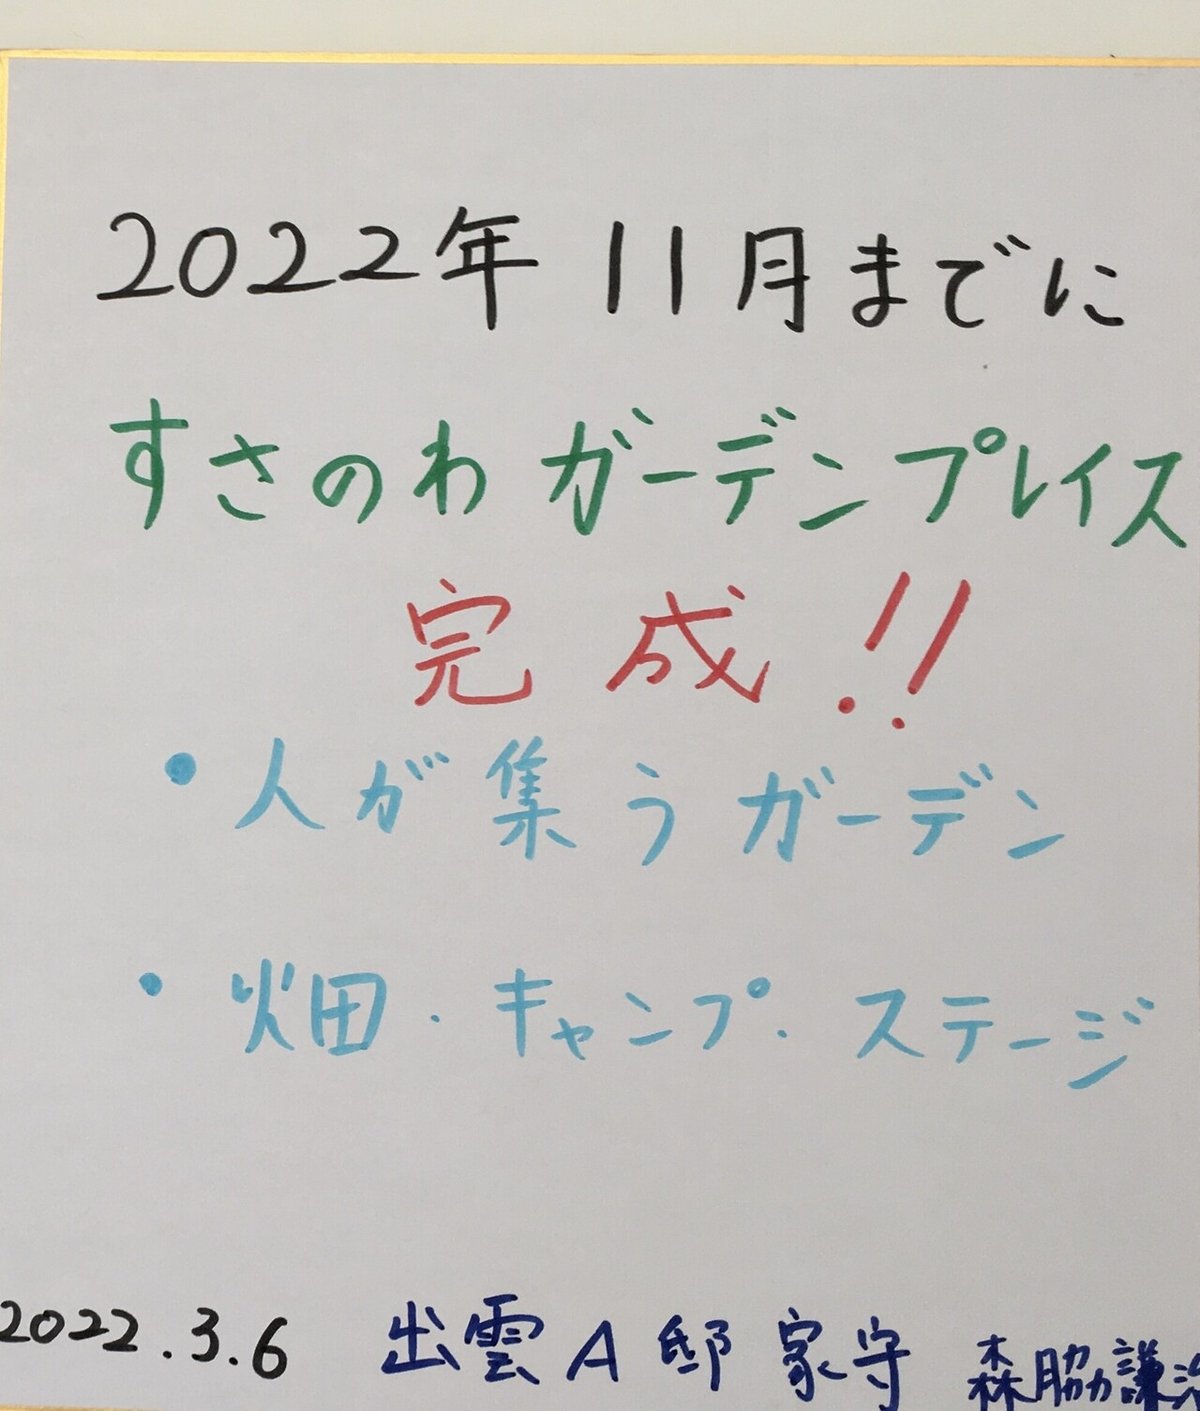 2022年 11月までに
すさのわ ガーデンプレイス
完成!!
・人が集うガーデン
・畑・キャンプ・ステージ
2022.3.6 出雲A邸 家守 森脇謙治